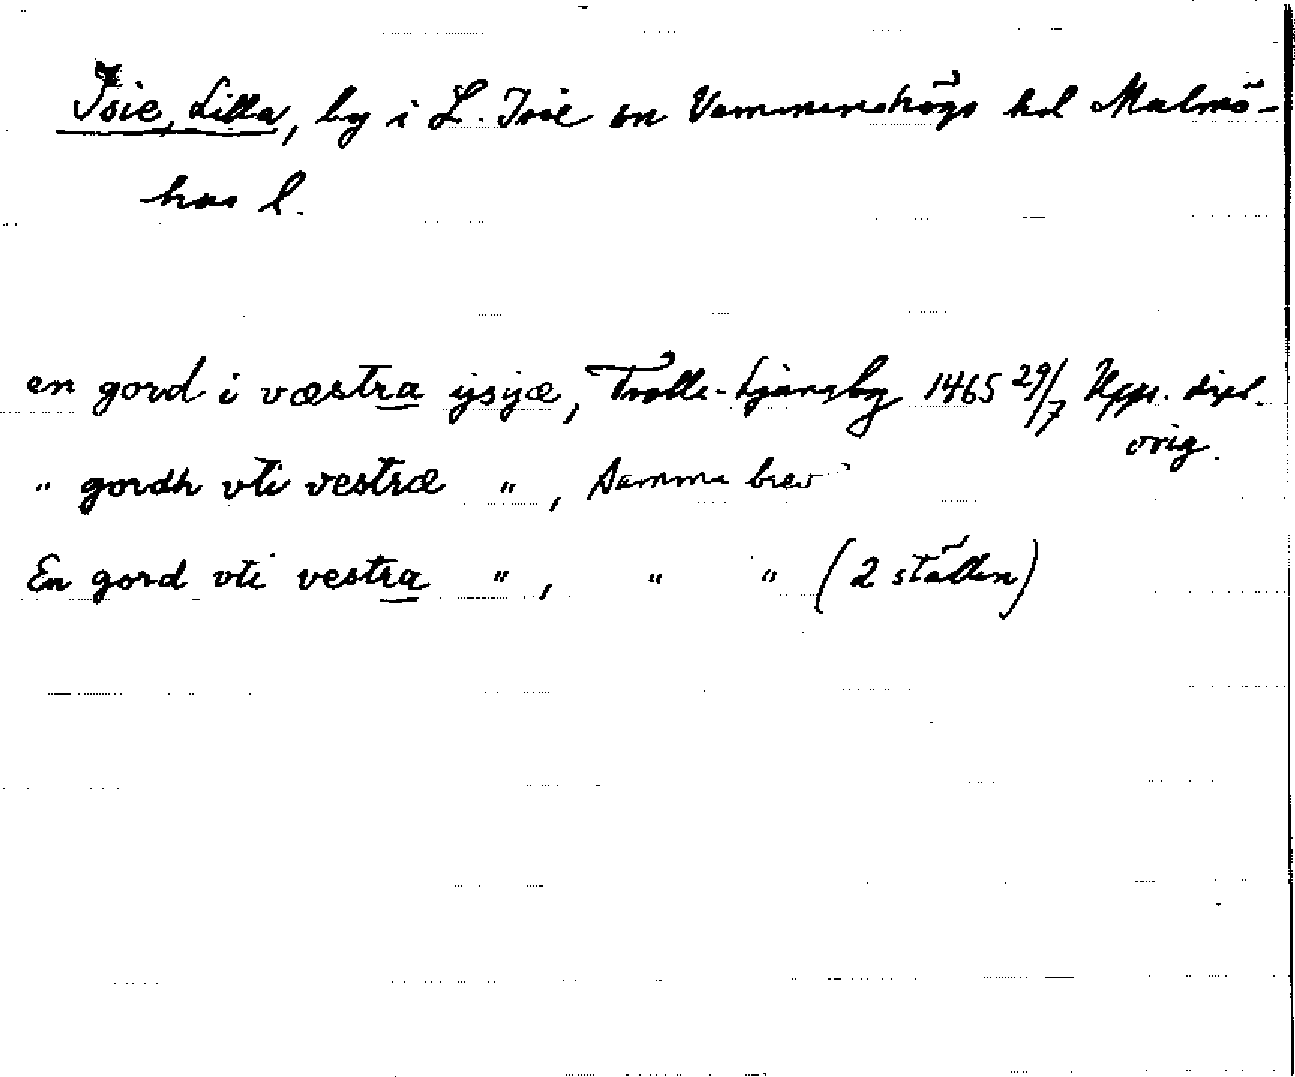 Isie, Lilla, by i L. Isie sn Vemmenshögs hd Malmö-
hus l.
en gord i væstra ysyæ, Trolle-Ljungby 1465 29/7 Upps. dipl.
orig.
" gordh vti vestræ ", samma brev
En gord vti vestra ", " " (2 ställen)